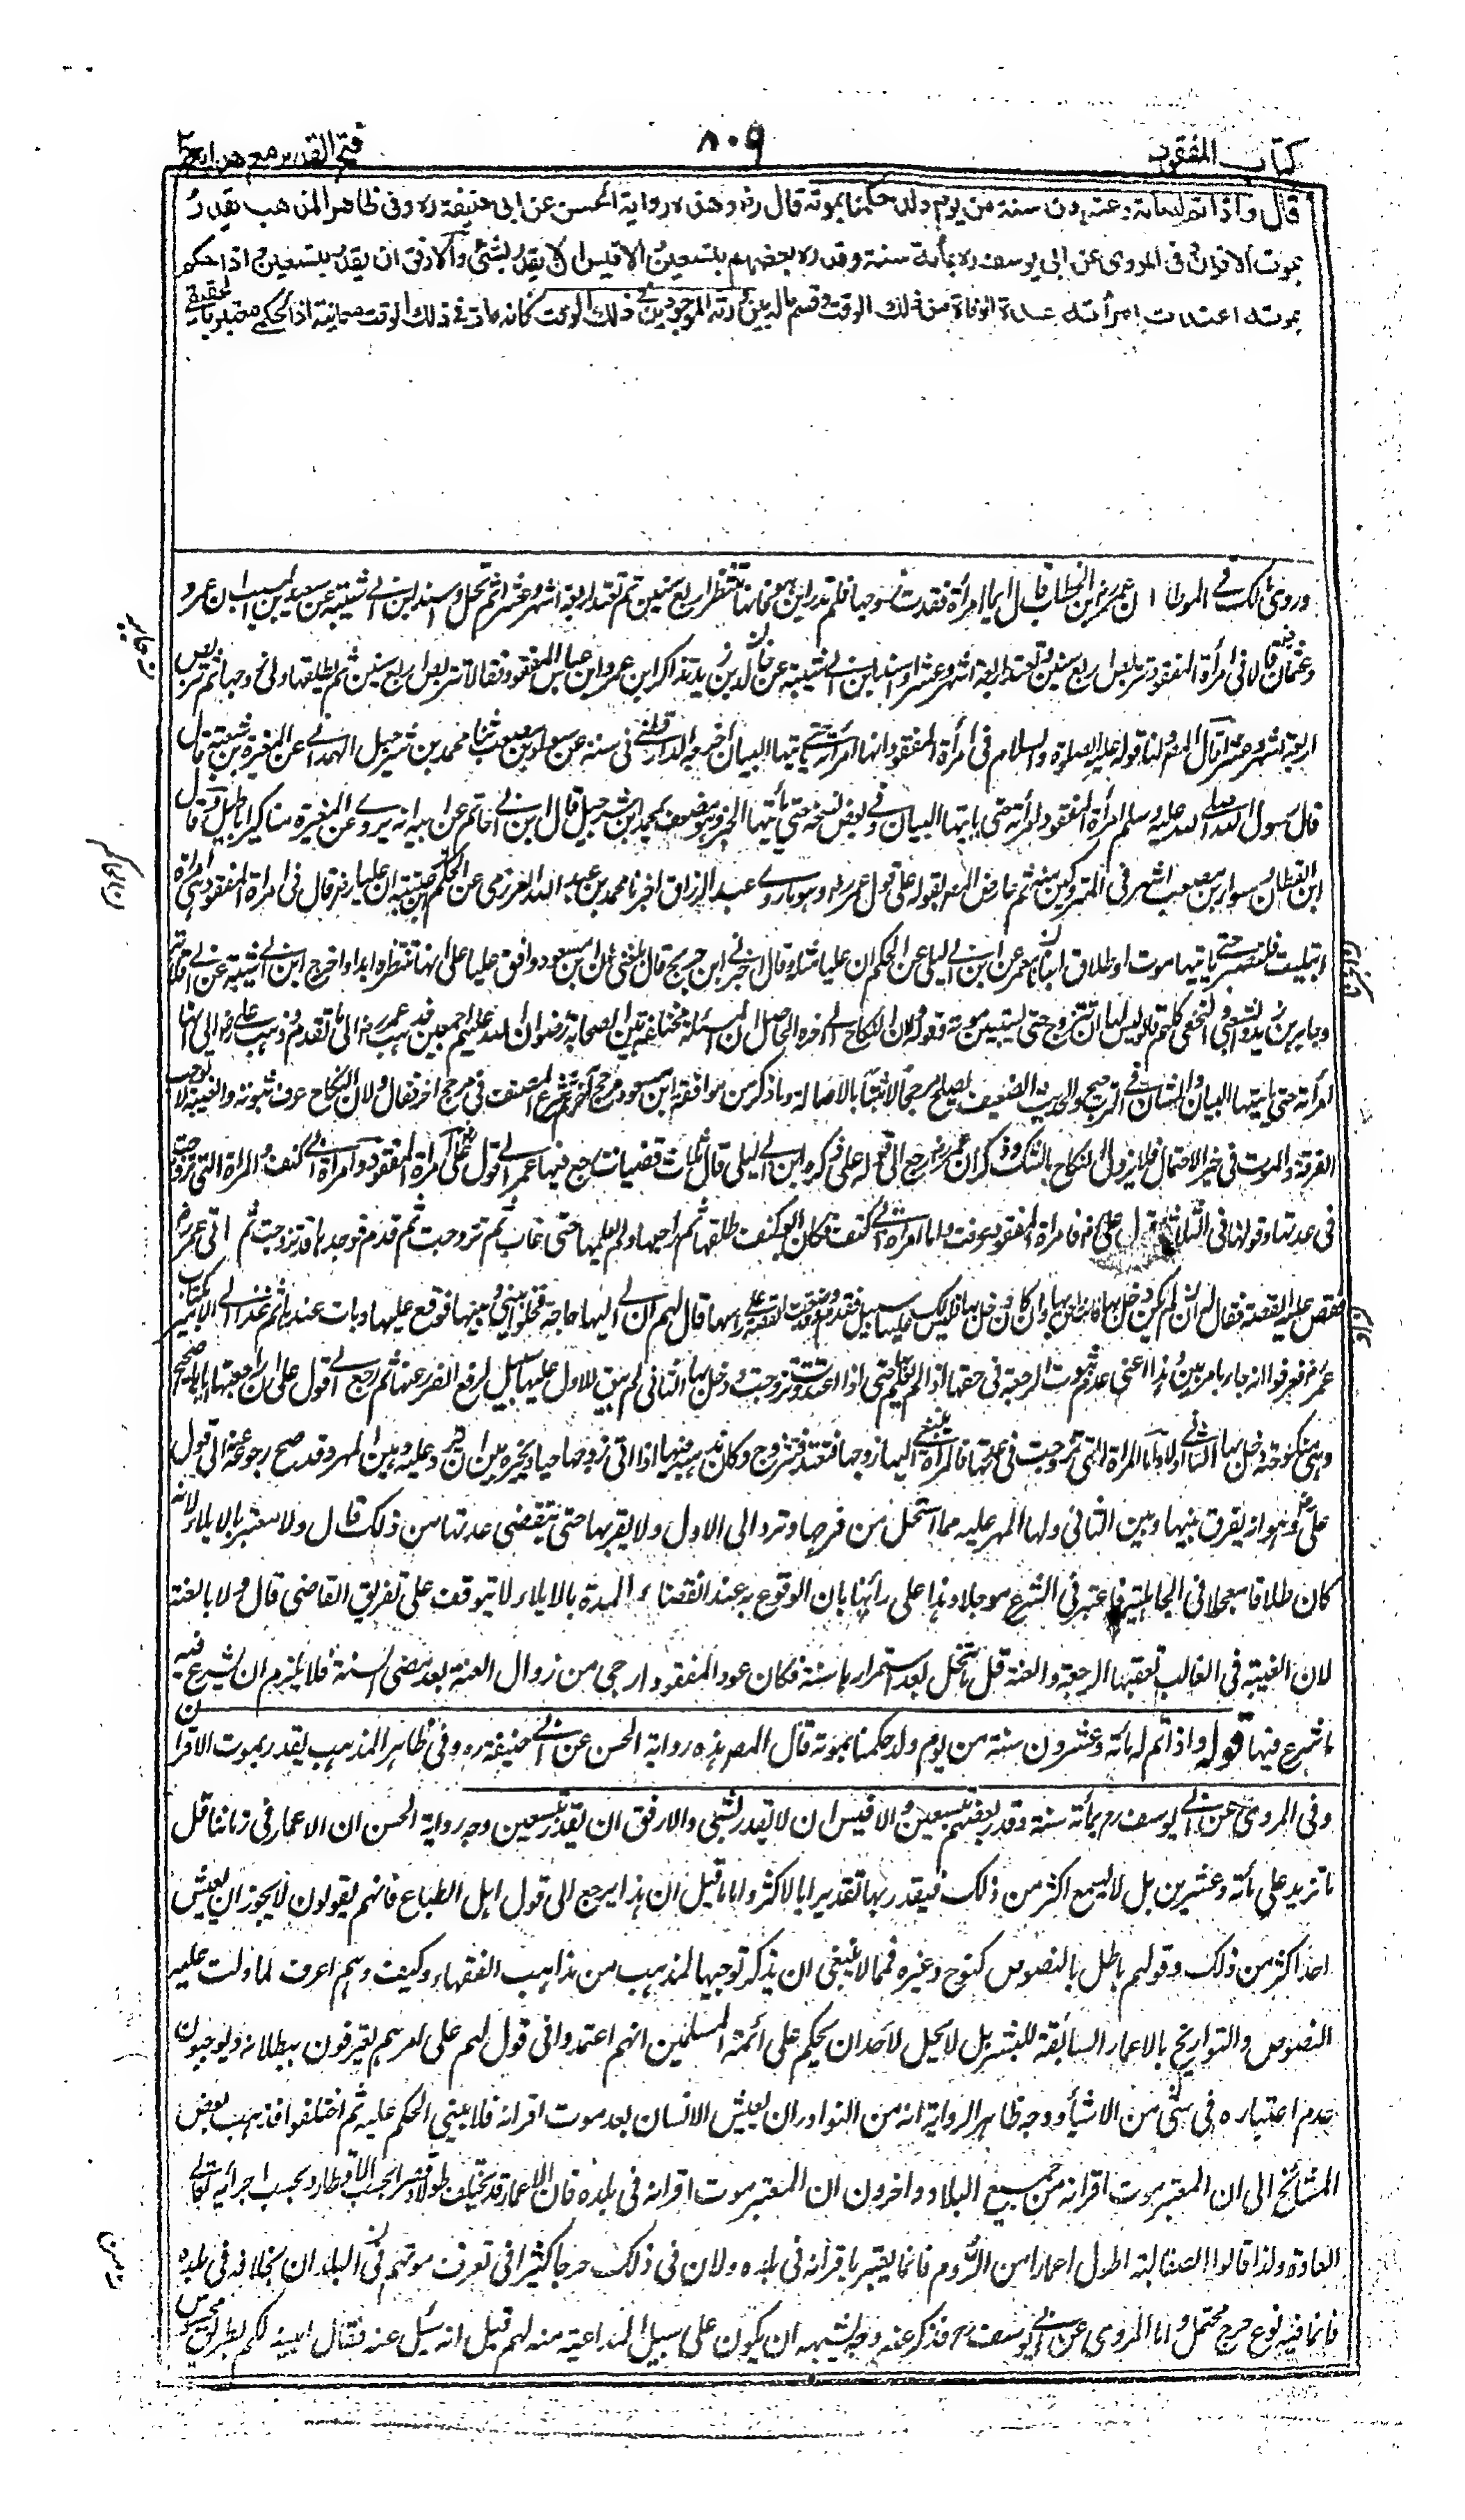 كتاب المفقود
٨٠٩
فتح القدير مع هدايه ج٢
قال واذا تم له مائة وعشرون سنة من يوم ولد حكمنا بموته قال ره وهذه رواية الحسن عن ابى حنيفة ره وفى ظاهر المذهب يقدر
بموت الاقران وفى المروى عن ابى يوسف ره بمائة سنة وقدره بعضهم بتسعين والاقيس ان لا يقدر بشئ والارفق ان يقدر بتسعين واذا حكم
بموته اعتدت امرأته عدة الوفاة من ذلك الوقت وقسم ماله بين ورثته الموجودين فى ذلك الوقت كانه مات فى ذلك الوقت معاينة اذ الحكمى معتبر بالحقيقى
وروى مالك فى الموطا ان عمر بن الخطاب قال ايما امرأة فقدت زوجها فلم تدر اين هو فانها تنتظر اربع سنين ثم تعتد اربعة اشهر وعشرا ثم تحل واسند ابن ابى شيبة عن سعيد بن المسيب ان عمر و
وعثمان قالا فى امرأة المفقود تربص اربع سنين وتعتد اربعة اشهر وعشرا واسند ابن ابى شيبة عن جابر بن زيد تذاكر ابن عمر وابن عباس المفقود فقالا تتربص اربع سنين ثم يطلقها ولى زوجها ثم تربص
اربعة اشهر وعشرا قال المصـ ولنا قوله عليه الصلوة والسلام فى امرأة المفقود انها امرأته حتى ياتيها البيان اخرجه الدارقطنى فى سننه عن سوار بن مصعب ثنا محمد بن شرحبيل الهمدانى عن المغيرة بن شعبة قال
قال رسول الله صلى الله عليه وسلم امرأة المفقود امرأته حتى ياتيها البيان وفى بعض نسخه حتى يأتيها الخبر وهو مضعف بمحمد بن شرحبيل قال ابن ابى حاتم عن ابيه انه يروى عن المغيرة مناكير اباطيل وقال
ابن القطان وسوار بن مصعب اشهر فى المتروكين منه ثم عارض المصـ بقوله على قول عمر ره وهو ما روى عبد الرزاق اخبرنا محمد بن عبيد الله العرزمى عن الحكم بن عتيبة ان عليا رضـ قال فى امراة المفقود هى امرأة
ابتليت فلتصبر حتى ياتيها موت او طلاق انبأنا معمر عن ابن ابى ليلى عن الحكم ان عليا مثله وقال اخبرنى ابن جريج قال بلغنى ان ابن مسعود وافق عليا على انها تنتظره ابدا واخرج ابن ابى شيبة عن ابى قلابة
وجابر بن زيد والشعبى والنخعى كلهم قالوا ليس لها ان تتزوج حتى يستبين موته وقوله ولان النكاح الى اخره الحاصل ان المسئلة مختلفة بين الصحابة رضوان الله عليهم اجمعين فذهب عمر رضـ الى ما تقدم وذهب على رضـ الى انها
امرأته حتى ياتيها البيان والشان فى الترجيح والحديث الضعيف يصلح مرجحا لا مثبتا بالاصالة وما ذكر من موافقة ابن مسعود مرجح اخر ثم شرع المصنف فى مرجح اخر فقال ولان النكاح عرف ثبوته والغيبة لا توجب
الفرقة والموت فى حيز الاحتمال فلا يزول النكاح بالشك وذكر ان عمر رضـ رجع الى قول على ذكره ابن ابى ليلى قال ثلث قضيات رجع فيها عمر الى قول على امرأة المفقود وامرأة ابى كنف والمرأة التى تزوجت
فى عدتها وقولنا فى الثلاث قول على رضـ فامرأة المفقود عرفت واما امرأة ابى كنف فكان ابو كنف طلقها ثم راجعها ولم يعلمها حتى غاب ثم تزوجت ثم قدم فوجدها قد تزوجت ثم اتى عمر رضـ
فقص عليه القصة فقال له ان لم يكن دخل بها فانت احق بها وان كان دخل بها فليس لك عليها سبيل فقدم وقد وضعت القصة على راسها قال لهم ان لى اليها حاجة فخلوا بينى وبينها فوقع عليها وبات عندها ثم غدا الى الامير بكتاب
عمر رضـ فعرفوا انه جاء بامر بين وهذا اعنى عدم ثبوت الرجعة فى حقها اذا لم تعلم حتى اذا اعتدت وتزوجت ودخل بها الثانى لم يبق للاول عليها سبيل لرفع الضرر عنها ثم رجع الى قول على ان مراجعته اياها صحيحة
وهى منكوحته دخل بها الثانى اولا واما المرأة التى تزوجت فى عدتها فالمرأة ينعى اليها زوجها فتعتد فتتزوج وكان مذهبه فيها اذا اتى زوجها حيا يخيره بين ان ترد عليه وبين المهر وقد صح رجوعه الى قول
على رضـ وهو انه يفرق بينها وبين الثانى ولها المهر عليه مما استحل من فرجها وترد الى الاول ولا يقربها حتى تنقضى عدتها من ذلك قال ولا معتبر بالايلاء لانه
كان طلاقا معجلا فى الجاهلية فاعتبر فى الشرع موجلا وهذا على رائهنا بان الوقوع به عند انقضاء المدة بالايلاء لا يتوقف على تفريق القاضى قال ولا بالعنة
لان الغيبة فى الغالب تعقبها الرجعة والعنة قل ما تنحل بعد استمرارها سنة فكان عود المفقود ارجى من زوال العنة بعد مضى السنة فلا يلزم ان يشرع فيه
ما شرع فيها قوله واذا تم له مائة وعشرون سنة من يوم ولد حكمنا بموته قال المصـ هذه رواية الحسن عن ابى حنيفة ره وفى ظاهر المذهب يقدر بموت الاقران
وفى المروى عن ابى يوسف رح بمائة سنة وقدر بعضهم بتسعين والاقيس ان لا يقدر بشئ والارفق ان يقدر بتسعين وجه رواية الحسن ان الاعمار فى زماننا قل
ما تزيد على مائة وعشرين بل لا يسمع اكثر من ذلك فيقدر بها تقديرا بالاكثر واما ما قيل ان هذا يرجع الى قول اهل الطباع فانهم يقولون لا يجوز ان يعيش
احد اكثر من ذلك وقولهم باطل بالنصوص كنوح وغيره فمما لا ينبغى ان يذكر توجيها لمذهب من مذاهب الفقهاء وكيف وهم اعرف لما دلت عليه
النصوص والتواريخ بالاعمار السابقة للبشر بل لا يحل لاحد ان يحكم على ائمة المسلمين انهم اعتمدوا فى قول لهم على امر هم يعترفون ببطلانه ويوجبون
عدم اعتباره فى شئ من الاشيأ ووجه ظاهر الرواية انه من النوادر ان يعيش الانسان بعد موت اقرانه فلا يبنى الحكم عليه ثم اختلفوا فذهب بعض
المشائخ الى ان المعتبر موت اقرانه من جميع البلاد واخرون ان المعتبر موت اقرانه فى بلده فان الاعمار قد تختلف طولا وقصرا بحسب الاقطار وبحسب اجرائه تعالى
العادة ولذا قالوا الصقالبة اطول اعمارا من الروم فانما يعتبر باقرانه فى بلده ولان فى ذلك حرجا كثيرا فى تعرف موتهم فى البلدان بخلافه فى بلده
فانما فيه نوع حرج محتمل واما المروى عن ابى يوسف رح فذكر عنه وجه يشبه ان يكون على سبيل المداعبة منه لهم قيل انه سئل عنه فقال ابينه لكم بطريق محسوس